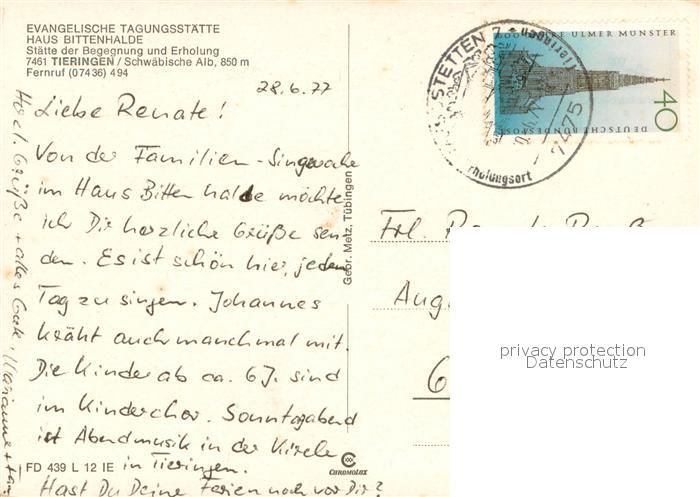 EVANGELISCHE TAGUNGSSTÄTTE
HAUS BITTENHALDE
Stätte der Begegnung und Erholung
7461 TIERINGEN / Schwäbische Alb, 850 m
Fernruf (07436) 494
28.6.77
Liebe Renate!
Von der Familien-Singwoche
im Haus Bittenhalde möchte
ich Dir herzliche Grüße sen-
den. Es ist schön hier, jeden
Tag zu singen. Johannes
kräht auch manchmal mit.
Die Kinder ab ca. 6 J. sind
im Kinderchor. Sonntagabend
ist Abendmusik in der Kirche
in Tieringen.
Hast Du Deine Ferien noch vor Dir?
Herzl. Grüße + alles Gute, Marianne +
FD 439 L 12 IE
CHROMOLUX
Geor. Metz, Tübingen
STETTEN 7
Tieringen
7475
Erholungsort
ULMER MÜNSTER
DEUTSCHE BUNDESPOST
40
Frl.
Aug
6
privacy protection
Datenschutz